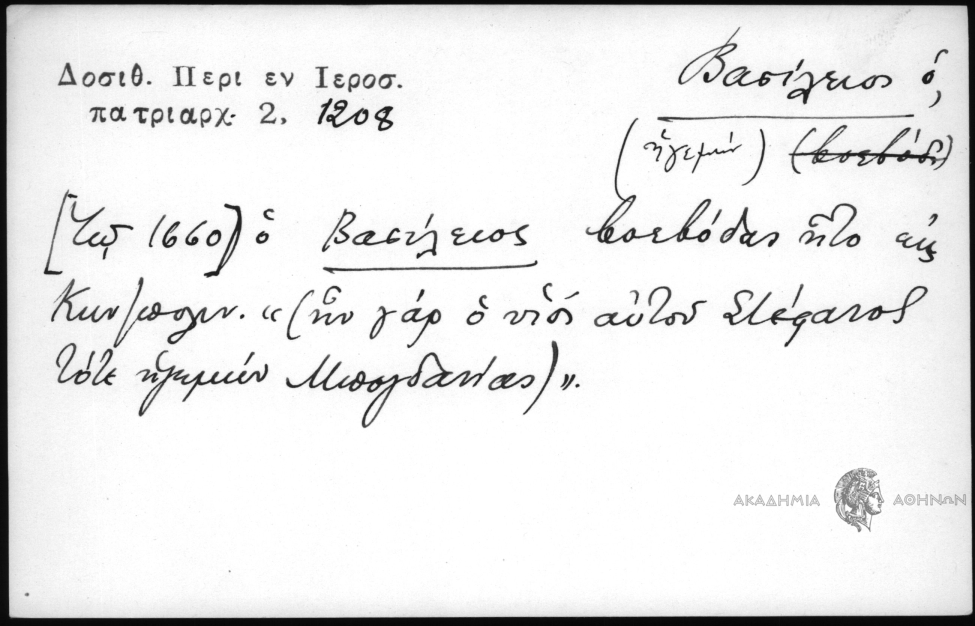 Δοσιθ. Περι εν Ιεροσ.
πατριαρχ. 2, 1208
Βασίλειος ὁ,
(ἡγεμών) (βοεβόδας)
[Τῷ 1660] ὁ Βασίλειος βοεβόδας ἦτο εἰς
Κων/πολιν. «(ἦν γάρ ὁ υἱός αὐτοῦ Στέφανος
τότε ἡγεμών Μπογδανίας)».
ΑΚΑΔΗΜΙΑ ΑΘΗΝΩΝ